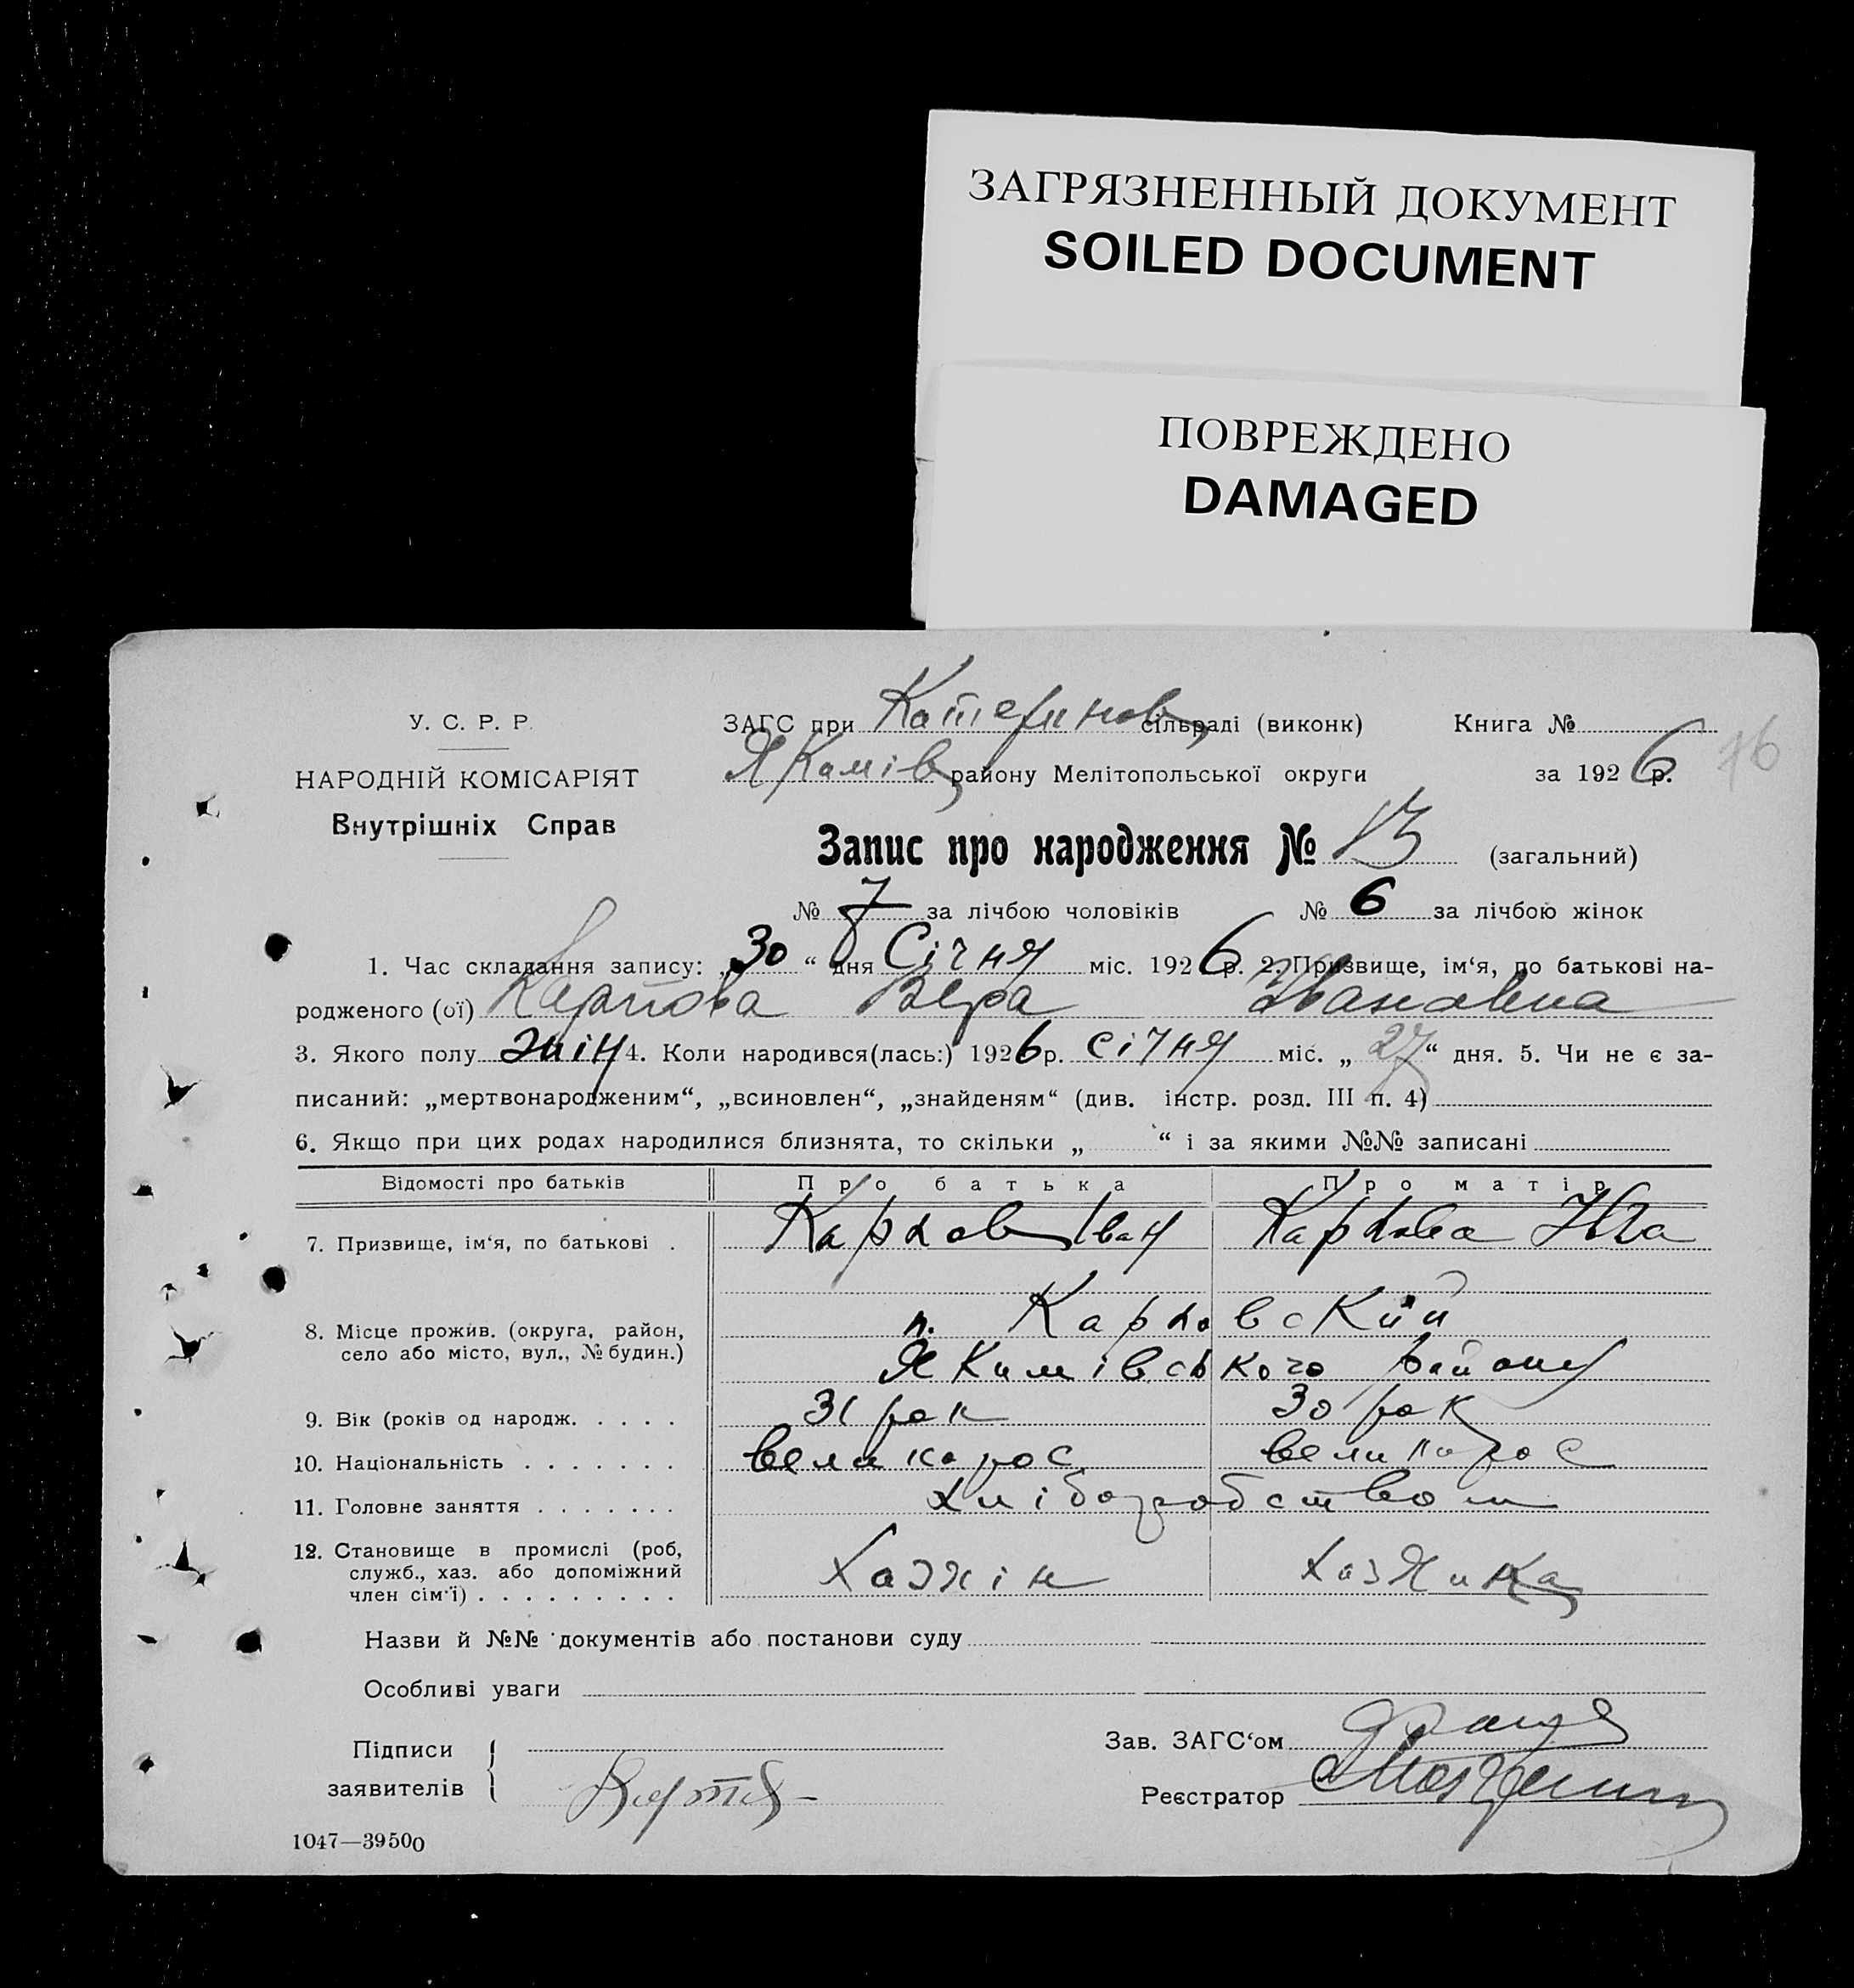 ЗАГРЯЗНЕННЫЙ ДОКУМЕНТ
SOILED DOCUMENT
ПОВРЕЖДЕНО
DAMAGED
У. С. Р. Р.
НАРОДНІЙ КОМІСАРІЯТ
Внутрішніх Справ
ЗАГС при Катеринов, сільраді (виконк) Книга №
району Мелітопольської округи за 1926 р. 76
Запис про народження № 13 (загальний)
№ 7 за лічбою чоловіків № 6 за лічбою жінок
1. Час складання запису: „30“ дня Січня міс. 1926 р. 2. Призвище, ім‘я, по батькові на-
родженого (ої) Карпова Вера Ивановна
3. Якого полу жін 4. Коли народився(лась:) 1926 р. січня міс. „27“ дня. 5. Чи не є за-
писаний: „мертвонародженим“, „всиновлен“, „знайденям“ (див. інстр. розд. III п. 4)
6. Якщо при цих родах народилися близнята, то скільки „ “ і за якими №№ записані
Відомості про батьків Про батька Про матір
7. Призвище, ім‘я, по батькові . Карпов Іван Карпова
8. Місце прожив. (округа, район,
село або місто, вул., № будин.)
п. Карповский
Якимівського району
9. Вік (років од народж. . . . . 31 рок 30 рок
10. Національність . . . . . . . великорос великорос
11. Головне заняття . . . . . . . хліборобством
12. Становище в промислі (роб,
служб., хаз. або допоміжний
член сім‘ї) . . . . . . . . . Хазяін хазяика
Назви й №№ документів або постанови суду
Особливі уваги
Підписи
заявителів
Зав. ЗАГС‘ом
Реєстратор
1047—39500